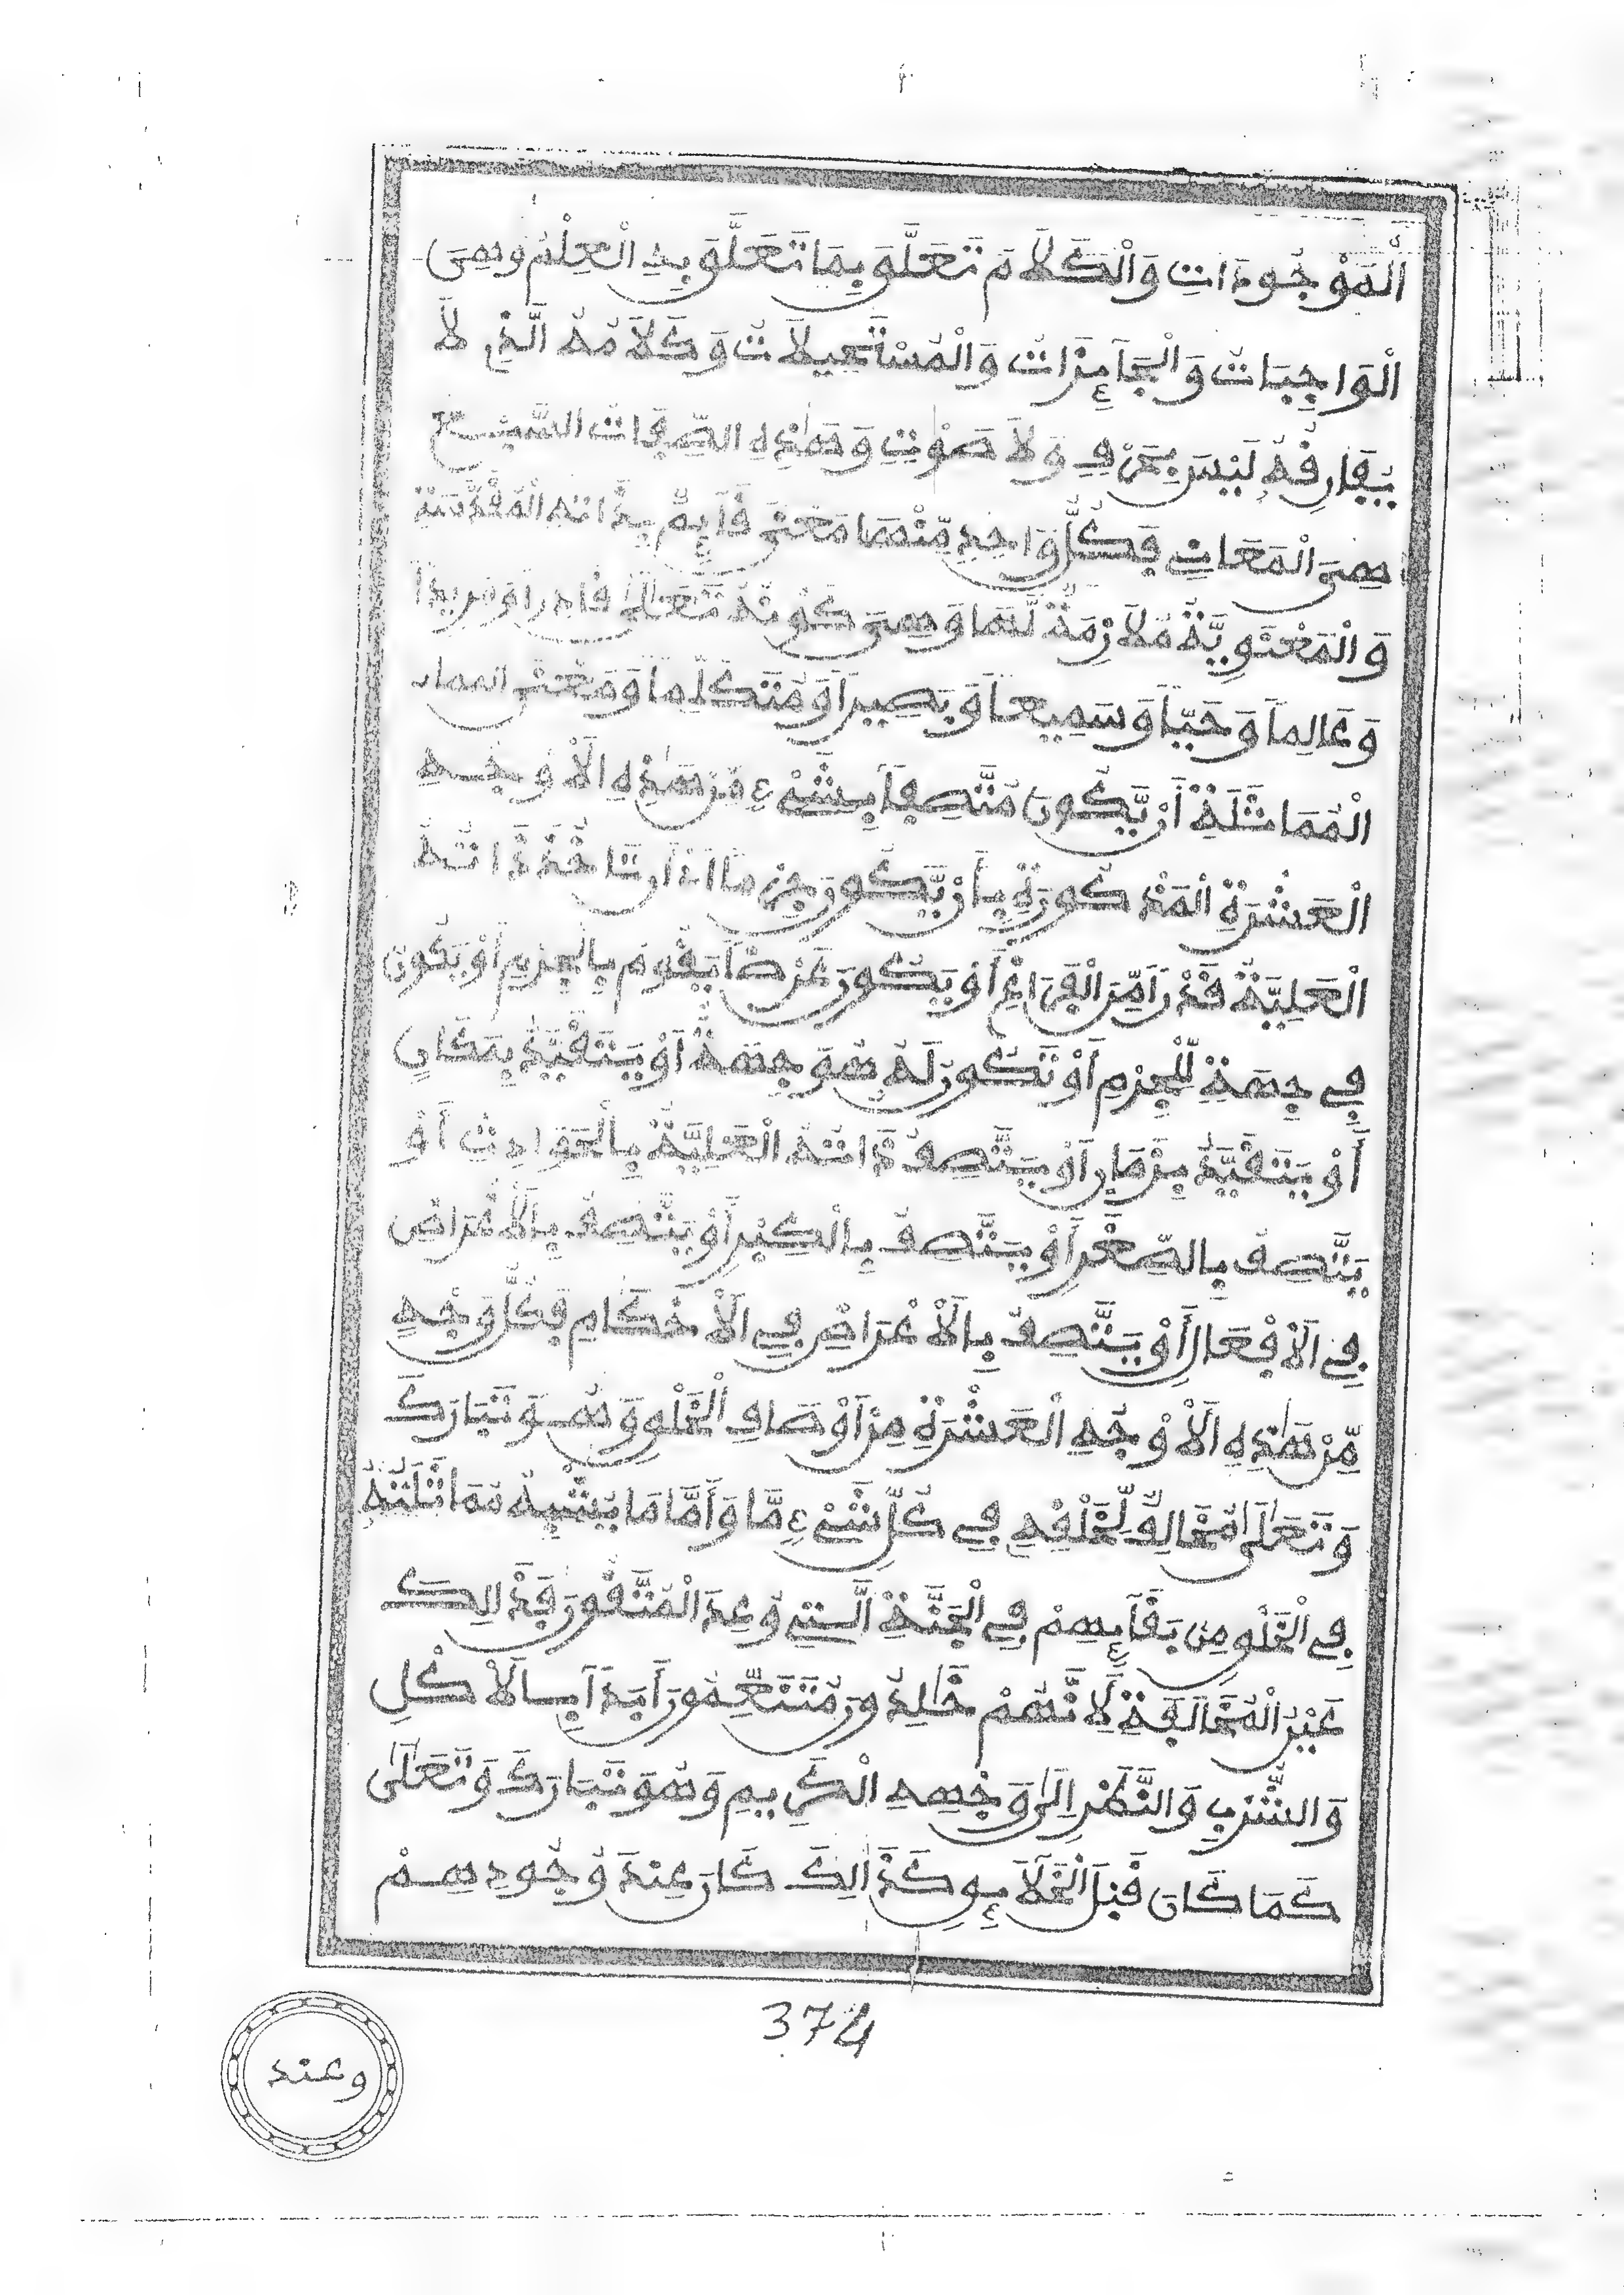 اَلْمَوْجُودَاتِ وَالْكَلَامَ تَعَلَّقَ بِمَا تَعَلَّقَ بِهِ الْعِلْمُ وَهِيَ
اَلْوَاجِبَاتُ وَالْجَآئِزَاتُ وَالْمُسْتَحِيلَاتُ وَكَلَامُهُ الَّذِي لَا
يُفَارِقُهُ لَيْسَ بِحَرْفٍ وَلَا صَوْتٍ وَهَذِهِ الصِّفَاتُ السَّبْعُ
هِيَ الْمَعَانِي فَكُلُّ وَاحِدٍ مِّنْهَا مَعْنًى قَآئِمٌ بِذَاتِهِ الْمُقَدَّسَةِ
وَالْمَعْنَوِيَّةُ مُلَازِمَةٌ لَّهَا وَهِيَ كَوْنُهُ تَعَالَى قَادِرًا وَمُرِيدًا
وَعَالِمًا وَحَيًّا وَسَمِيعًا وَبَصِيرًا وَمُتَكَلِّمًا وَمَعْنَى
الْمُمَاثَلَةِ أَنْ يَّكُونَ مُتَّصِفًا بِشَيْءٍ مِّنْ هَذِهِ الْأَوْجُهِ
الْعَشْرَةِ الْمَذْكُورَةِ بِأَنْ يَّكُونَ جِرْمًا أَيْ تَأْخُذُ ذَاتُهُ
الْعَلِيَّةُ قَدْرًا مِّنَ الْفَرَاغِ أَوْ يَكُونَ عَرَضًا يَقُومُ بِالْجِرْمِ أَوْ يَكُونَ
فِي جِهَةٍ لِّلْجِرْمِ أَوْ تَكُونَ لَهُ هُوَ جِهَةٌ أَوْ يَتَقَيَّدَ بِمَكَانٍ
أَوْ يَتَقَيَّدَ بِزَمَانٍ أَوْ يَتَّصِفَ ذَاتُهُ الْعَلِيَّةُ بِالْحَوَادِثِ أَوْ
يَتَّصِفَ بِالصِّغَرِ أَوْ يَتَّصِفَ بِالْكِبَرِ أَوْ يَتَّصِفَ بِالْأَغْرَاضِ
فِي الْأَفْعَالِ أَوْ يَتَّصِفَ بِالْأَغْرَاضِ فِي الْأَحْكَامِ فَكُلُّ وَجْهٍ
مِّنْ هَذِهِ الْأَوْجُهِ الْعَشْرَةِ مِنْ أَوْصَافِ الْخَلْقِ وَهُوَ تَبَارَكَ
وَتَعَالَى مُخَالِفٌ لِّخَلْقِهِ فِي كُلِّ شَيْءٍ مَّا وَأَمَّا مَا يُشْبِهُ مُمَاثَلَتَهُ
فِي الْخَلْقِ مِنْ بَقَآئِهِمْ فِي الْجَنَّةِ الَّتِي وُعِدَ الْمُتَّقُونَ فَذَلِكَ
غَيْرُ الْمُخَالَفَةِ لِأَنَّهُمْ خَالِدُونَ مُتَنَعِّمُونَ أَبَدًا بِالْأَكْلِ
وَالشُّرْبِ وَالنَّظَرِ إِلَى وَجْهِهِ الْكَرِيمِ وَهُوَ تَبَارَكَ وَتَعَالَى
كَمَا كَانَ قَبْلَ الْخَلَآئِقِ كَذَلِكَ كَانَ عِنْدَ وُجُودِهِمْ
374
وعند